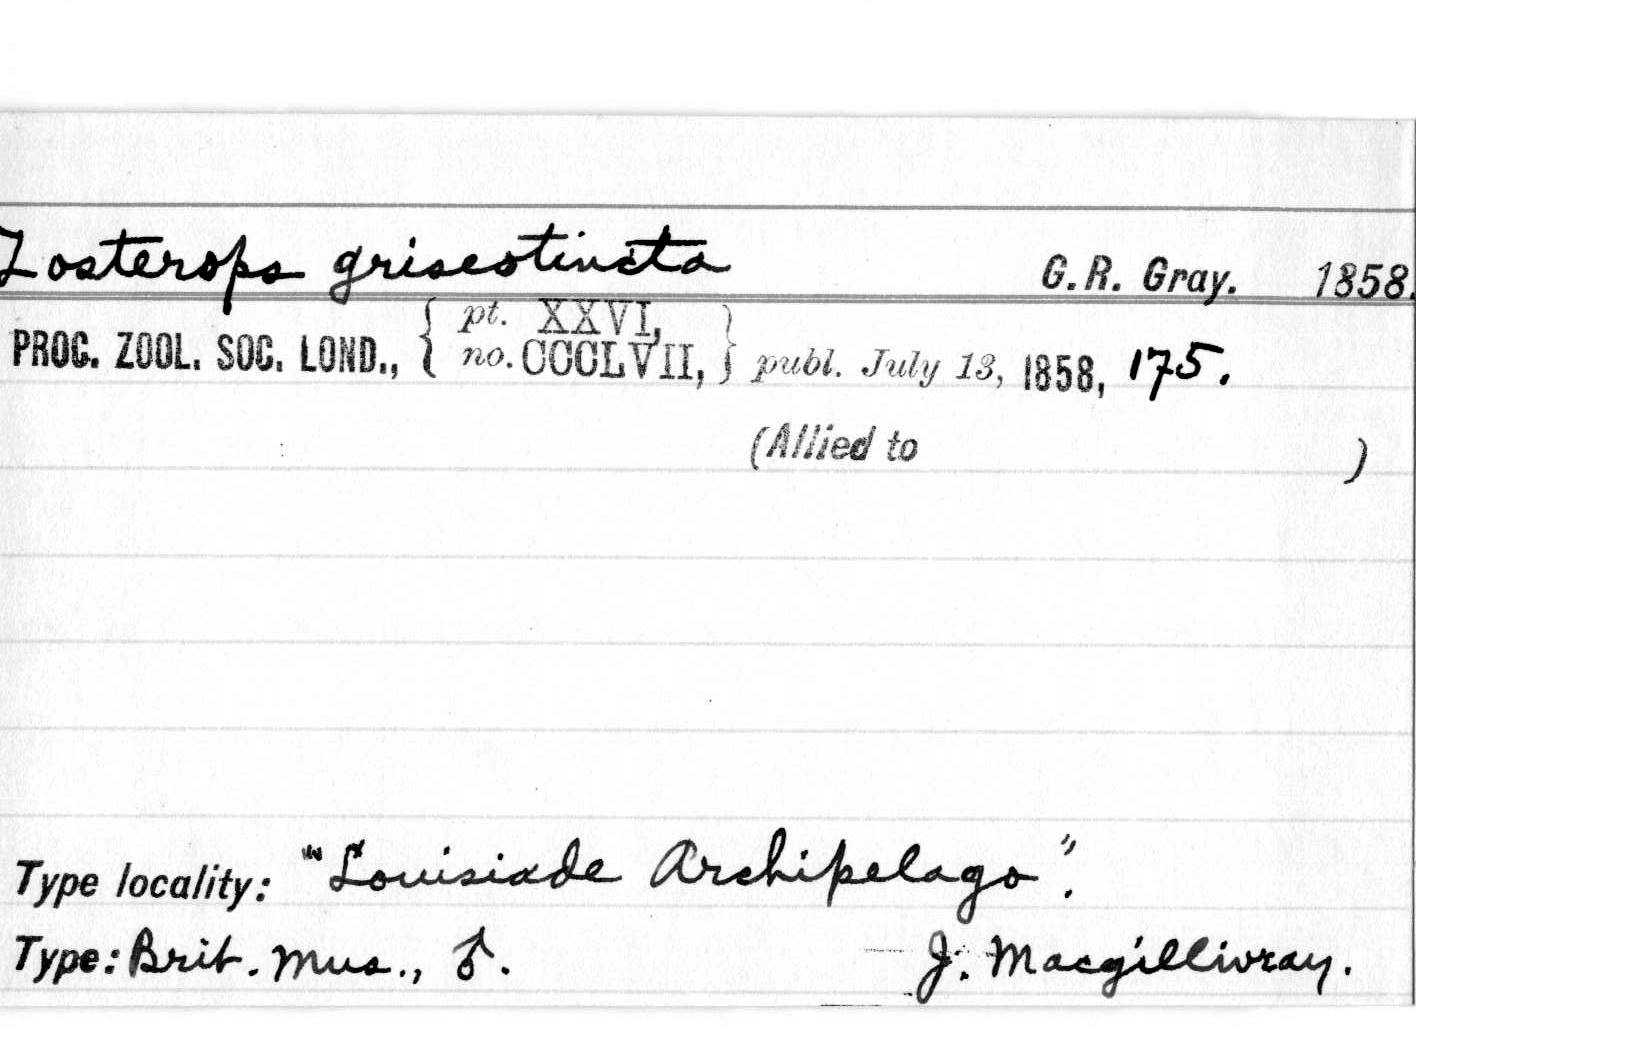 Zosterops griseotincta G.R. Gray. 1858.
PROC. ZOOL. SOC. LOND., { pt. XXVI, no. CCCLVII, } publ. July 13, 1858, 175.
(Allied to )
Type locality: "Louisiade Archipelago".
Type: Brit. Mus., ♂. J. Macgillivray.